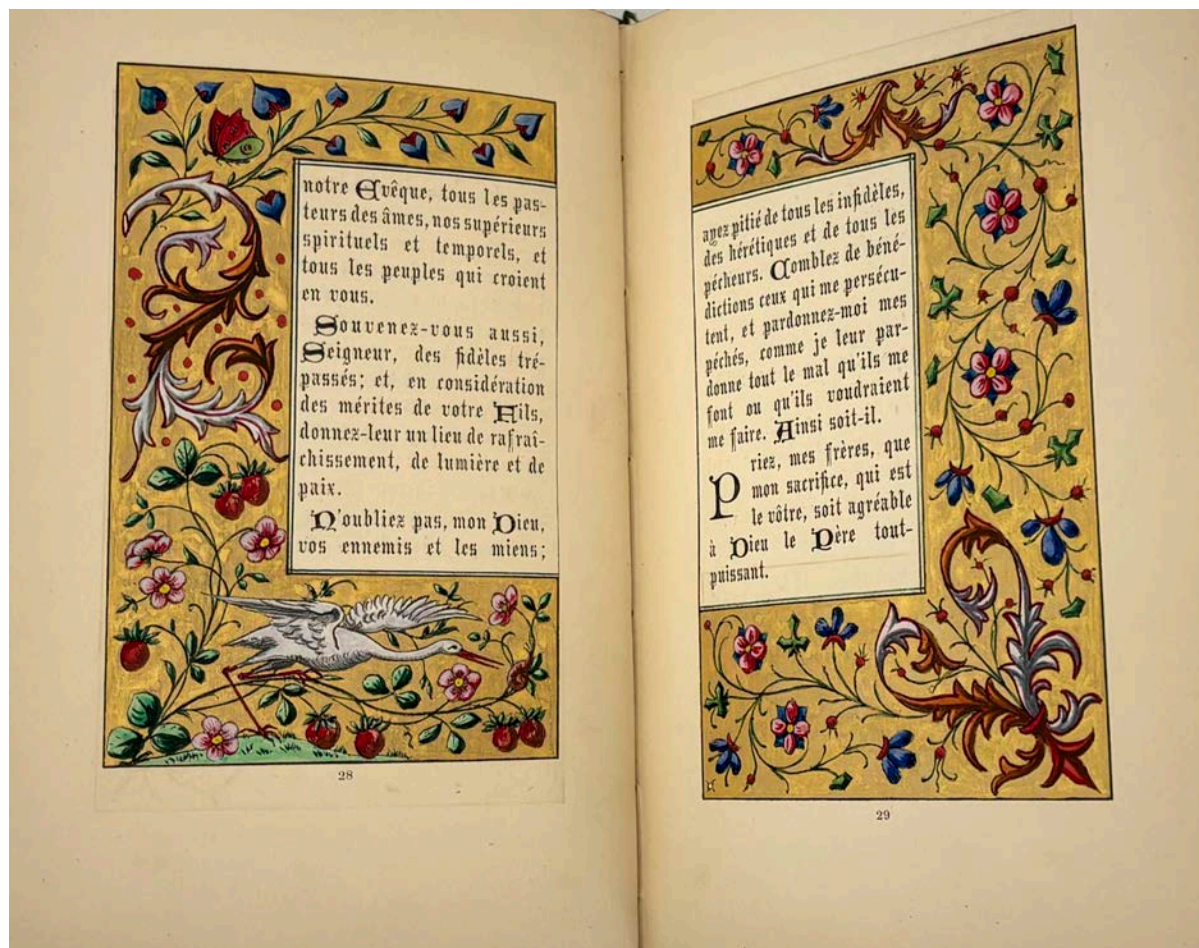 notre Evêque, tous les pas-
teurs des âmes, nos supérieurs
spirituels et temporels, et
tous les peuples qui croient
en vous.
Souvenez-vous aussi,
Seigneur, des fidèles tré-
passés; et, en considération
des mérites de votre Fils,
donnez-leur un lieu de rafraî-
chissement, de lumière et de
paix.
N'oubliez pas, mon Dieu,
vos ennemis et les miens;
28
ayez pitié de tous les infidèles,
des hérétiques et de tous les
pécheurs. Comblez de béné-
dictions ceux qui me persécu-
tent, et pardonnez-moi mes
péchés, comme je leur par-
donne tout le mal qu'ils me
font ou qu'ils voudraient
me faire. Ainsi soit-il.
Priez, mes frères, que
mon sacrifice, qui est
le vôtre, soit agréable
à Dieu le Père tout-
puissant.
29